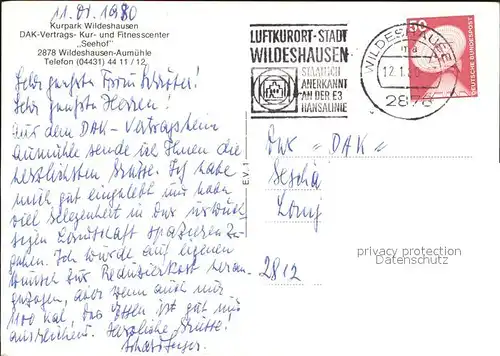 11.01.1980
Kurpark Wildeshausen
DAK-Vertrags- Kur- und Fitnesscenter
„Seehof"
2878 Wildeshausen-Aumühle
Telefon (04431) 44 11 / 12
Sehr geehrte Frau
Sehr geehrte Herren!
Aus dem DAK-Vertragsheim
Aumühle sende ich Ihnen die
herzlichsten Grüsse. Ich habe
mich gut eingelebt und habe
viel Gelegenheit in der urwüch-
sigen Landschaft spazieren zu
gehen. Ich wurde auf eigenen
Wunsch zur Reduzierkost heran-
gezogen, aber wenn auch nur
1100 kal, das Essen ist gut und
ausreichend. Herzliche Grüsse!
E.V. 1
LUFTKURORT-STADT
WILDESHAUSEN
STAATLICH
ANERKANNT
AN DER E3
HANSALINIE
WILDESHAUSEN
12.1.80
2878
50
DEUTSCHE BUNDESPOST
"DAK"
2812
privacy protection
Datenschutz